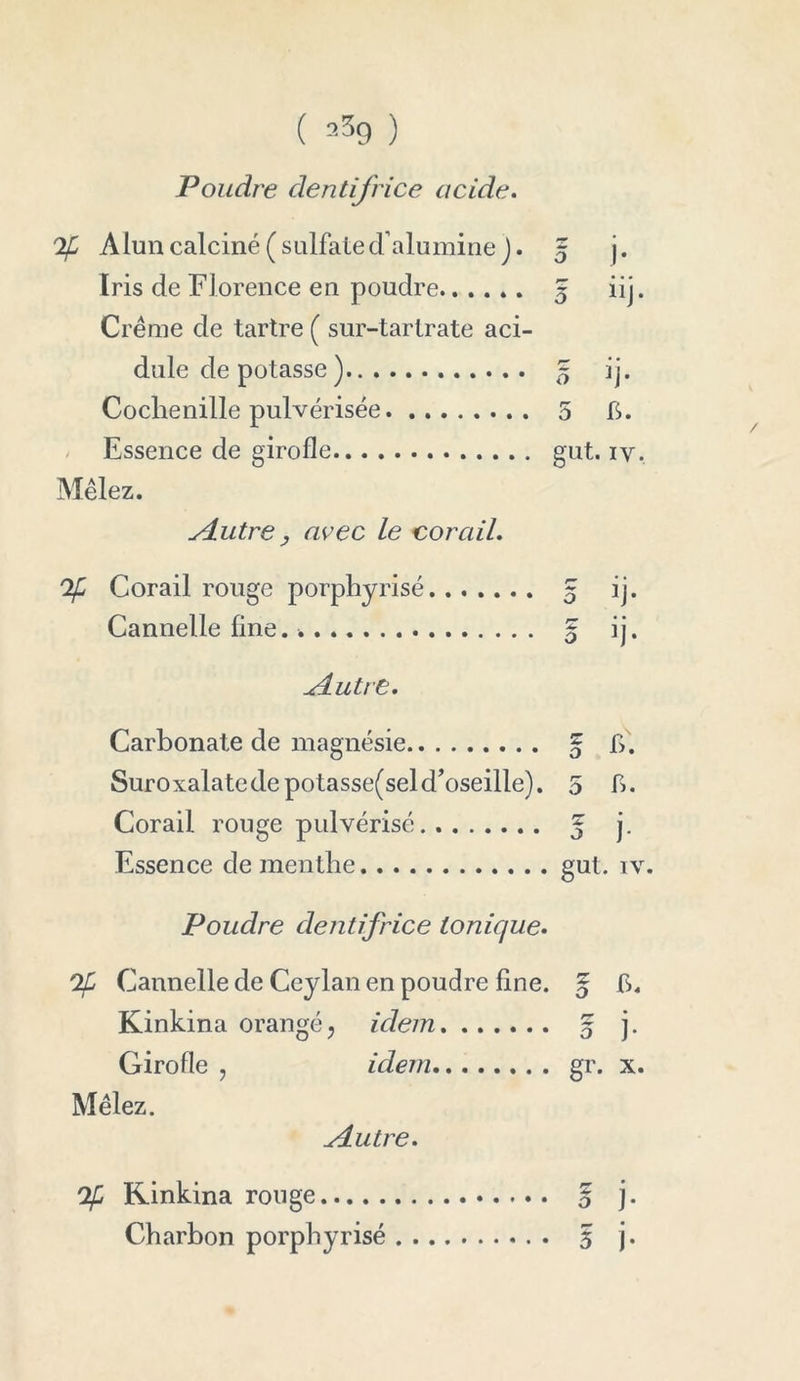 ( 239 )
Poudre dentifrice acide.
♃ Alun calciné ( sulfate d'alumine ). ℥ j.
Iris de Florence en poudre...... ℥ iij.
Crême de tartre ( sur-tartrate aci-
dule de potasse )............. ℥ ij.
Cochenille pulvérisée......... ʒ ß.
Essence de girofle.............. gut. iv.
Mêlez.
Autre, avec le corail.
♃ Corail rouge porphyrisé....... ℥ ij.
Cannelle fine................. ℥ ij.
Autre.
Carbonate de magnésie.......... ℥ ß.
Suroxalate de potasse(sel d'oseille). ʒ ß.
Corail rouge pulvérisé........ ℥ j.
Essence de menthe............. gut. iv.
Poudre dentifrice tonique.
♃ Cannelle de Ceylan en poudre fine. ℥ ß.
Kinkina orangé, idem....... ℥ j.
Girofle , idem......... gr. x.
Mêlez.
Autre.
♃ Kinkina rouge................ ℥ j.
Charbon porphyrisé........... ℥ j.